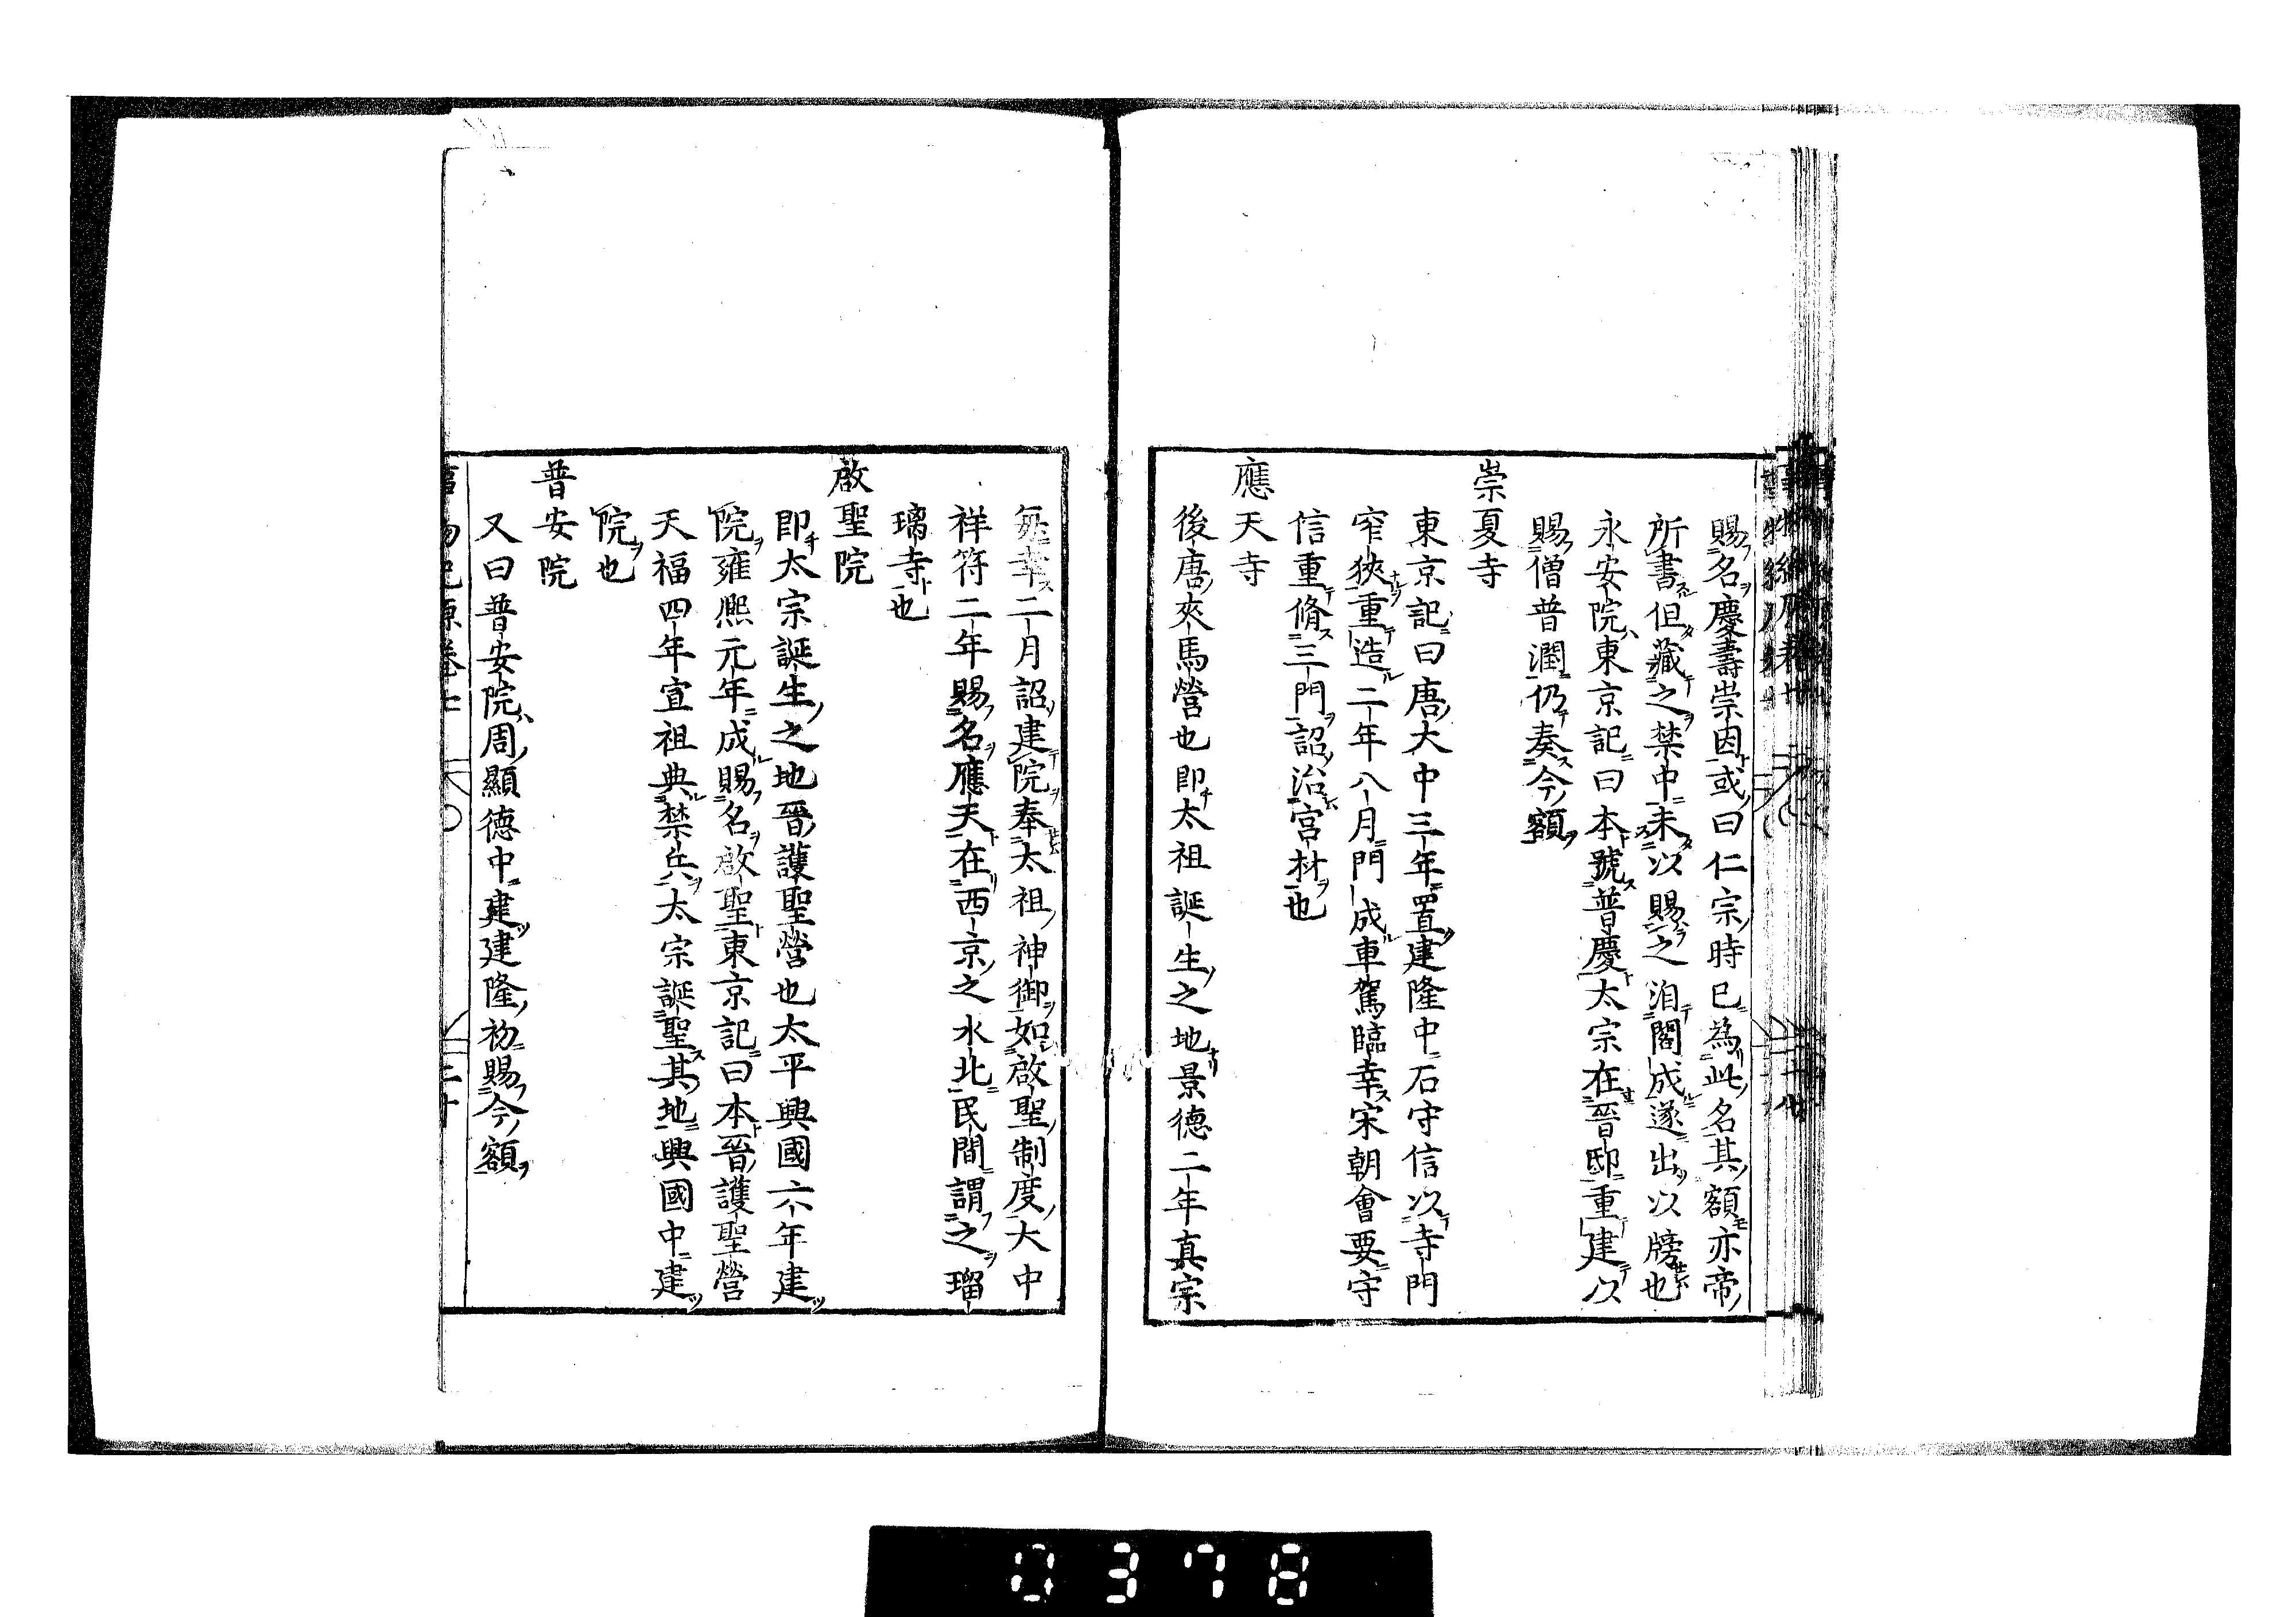 賜名慶壽崇因或曰仁宗時已為此名其額亦帝
所書但藏之禁中未以賜之洎閣成遂出以牓也
永安院東京記曰本號普慶太宗在晉邸重建以
賜僧普潤仍奏今額
崇夏寺
東京記曰唐大中三年置建隆中石守信以寺門
窄狹重造二年八月門成車駕臨幸宋朝會要守
信重脩三門詔治宮材也
應天寺
後唐夾馬營也即太祖誕生之地景德二年真宗
幸二月詔建院奉太祖神御如啟聖制度大中
祥符二年賜名應天在西京之水北民間謂之瑠
璃寺也
啟聖院
即太宗誕生之地晉護聖營也太平興國六年建
院雍熈元年成賜名啟聖東京記曰本晉護聖營
天福四年宣祖典禁兵太宗誕聖其地興國中建
院也
普安院
又曰普安院周顯德中建建隆初賜今額
0378